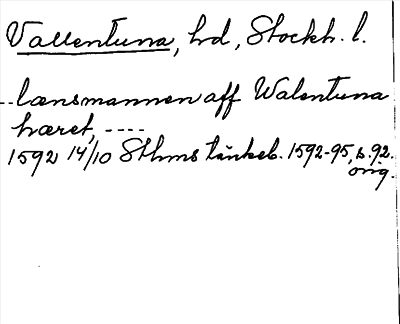 Vallentuna, hd, Stockh. l.
--lænsmannen aff Walentuna
hæret, ----
1592 14/10 Sthms tänkeb. 1592-95, s. 92.
orig.